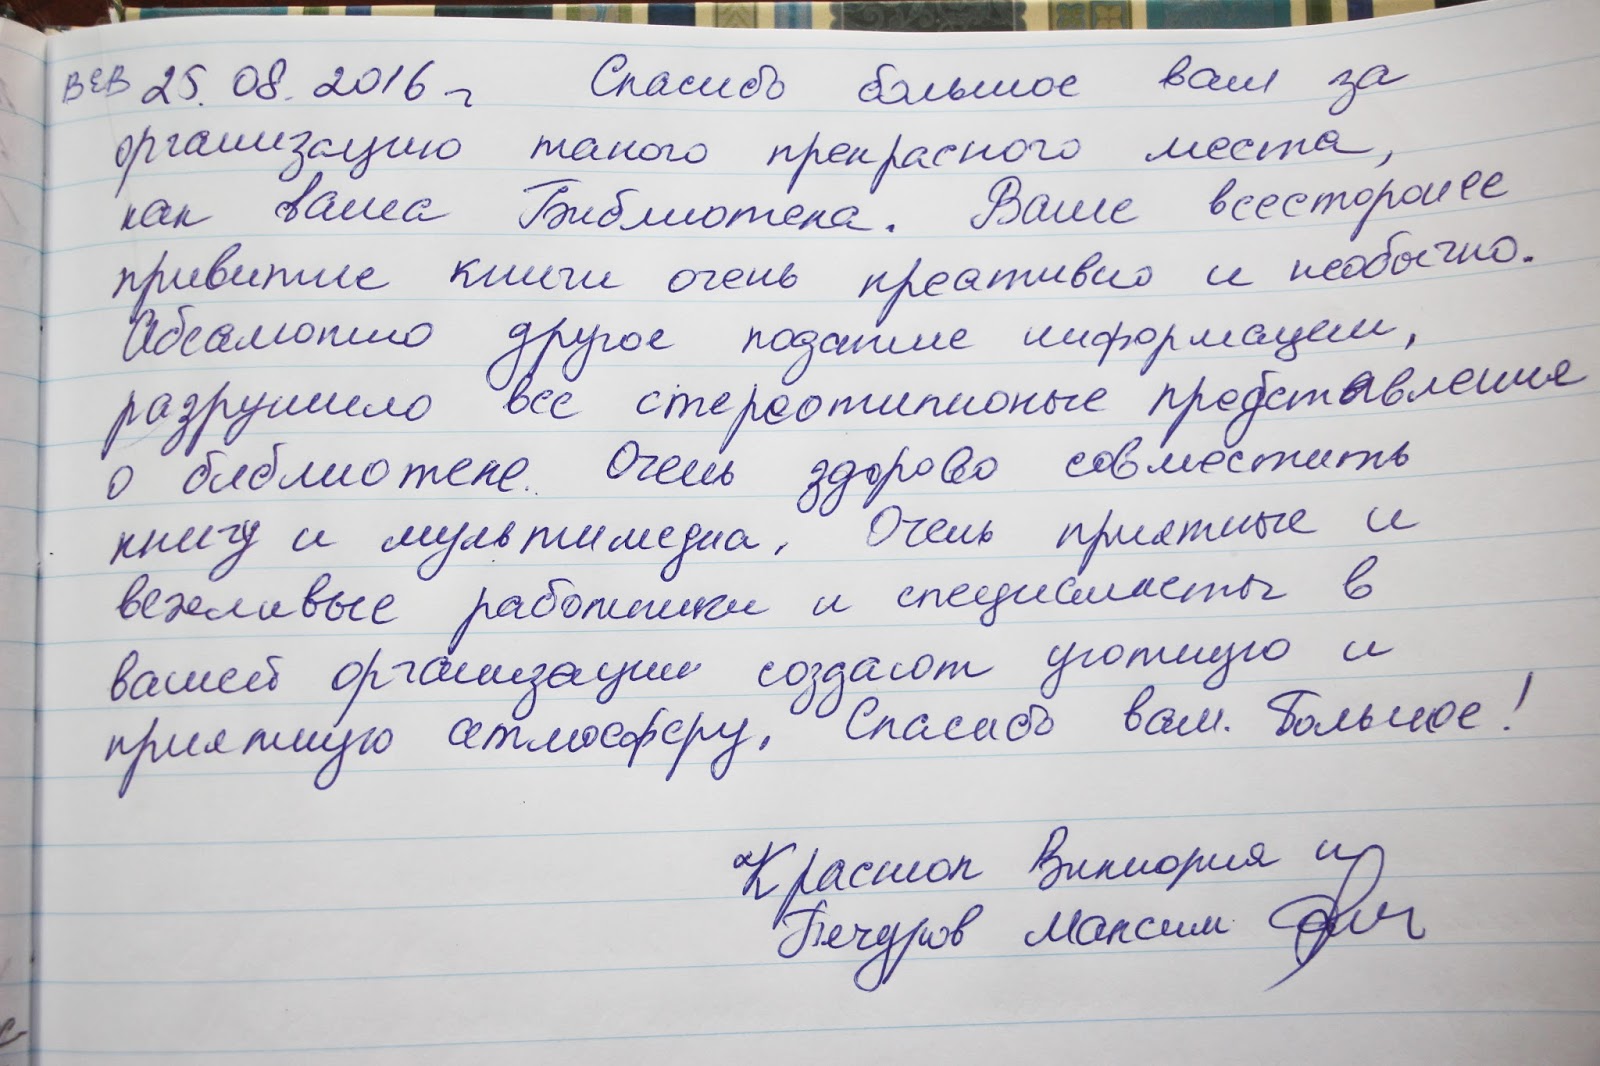 ВЕВ 25.08.2016 г Спасибо большое вам за
организацию такого прекрасного места,
как ваша Библиотека. Ваше всесторонее
привитие книги очень креативно и необычно.
Абсалютно другое подание информации,
разрушило все стереотипионые представления
о библиотеке. Очень здорово совместить
книгу и мультимедиа. Очень приятные и
вежливые работники и специалисты в
вашей организации создают уютную и
приятную атмосферу, Спасибо вам. Большое!
Краснок Виктория и
Бечуров Максим